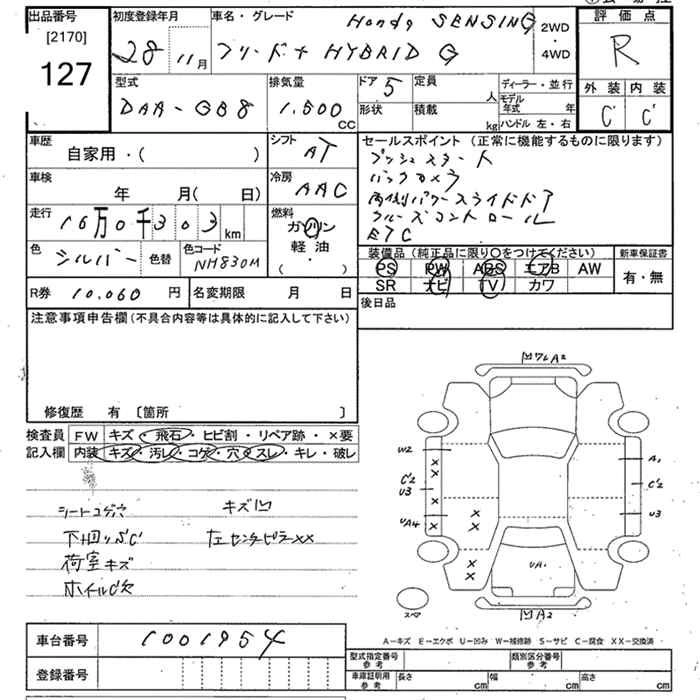 出品番号
[2170]
127
初度登録年月
28 11月
車名・グレード
Honda SENSING
フリード+ HYBRID G
2WD
・
4WD
評価点
R
外装 内装
C C
型式
DAA-GB8
排気量
1.500
CC
ドア 5
定員
人
形状
積載
kg
ディーラー・並行
モデル年式 年
ハンドル 左・右
車歴
自家用・( )
シフト
AT
車検
年 月( 日)
冷房
AAC
走行
10万0千303 km
燃料
ガソリン
軽油
( ・ )
色
シルバー
色替
色コード
NH830M
R券 10.060 円
名変期限 月 日
セールスポイント(正常に機能するものに限ります)
プッシュスタート
バックカメラ
両側パワースライドドア
クルーズコントロール
ETC
装備品(純正品に限り○をつけてください)
PS PW ABS エアB AW
SR ナビ TV カワ
新車保証書
有・無
後日品
注意事項申告欄(不具合内容等は具体的に記入して下さい)
修復歴 有 〔箇所 〕
検査員 FW キズ・飛石・ヒビ割・リペア跡・×要
記入欄 内装 キズ・汚レ・コゲ・穴・スレ・キレ・破レ
シートコゲ穴
キズ凹
下回りサビC
左センターピラーXX
荷室キズ
ホイルC欠
凹ワレA2
W2
C2
U3
UA4
A1
C2
U3
UA1
スペア
凹A2
A-キズ E-エクボ U-凹み W-補修跡 S-サビ C-腐食 XX-交換済
車台番号 1001954
登録番号
型式指定番号
参考
類別区分番号
参考
車庫証明用
参考
長さ cm
幅 cm
高さ cm